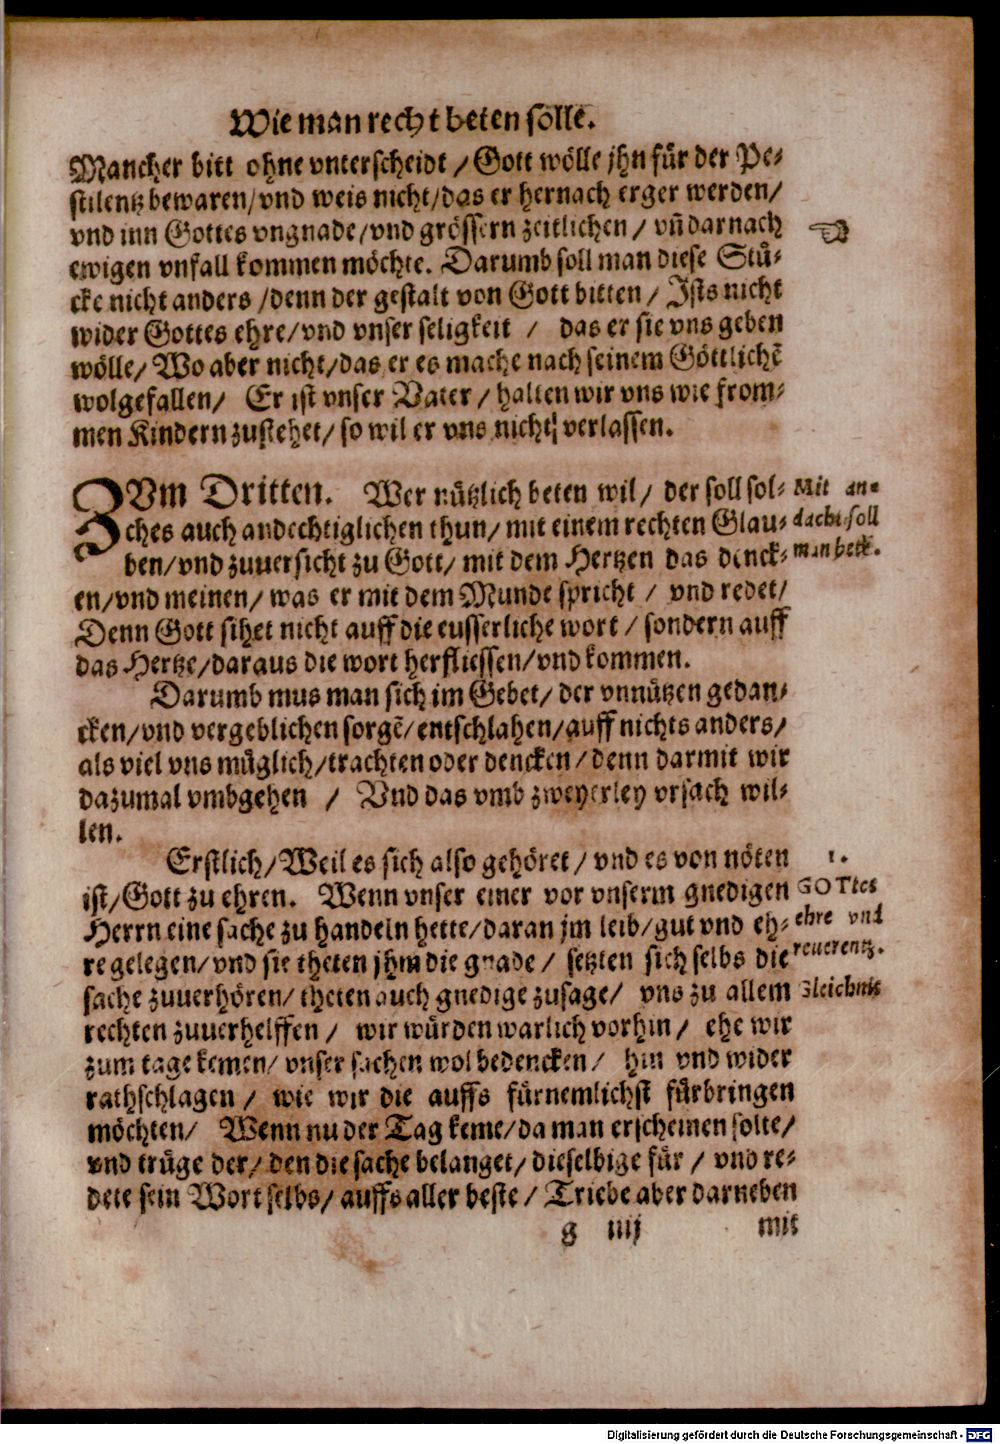 Wie man recht beten solle.
Mancher bitt ohne vnterscheidt / Gott wölle jhn für der Pe-
stilentz bewaren/ vnd weis nicht/das er hernach erger werden/
vnd inn Gottes vngnade/vnd grössern zeitlichen / vn̄ darnach
ewigen vnfall kommen möchte. Darumb soll man diese Stü-
cke nicht anders /denn der gestalt von Gott bitten / Ists nicht
wider Gottes ehre/vnd vnser seligkeit / das er sie vns geben
wölle/ Wo aber nicht/das er es mache nach seinem Göttlichē
wolgefallen/ Er ist vnser Vater / halten wir vns wie from-
men Kindern zustehet/ so wil er vns nicht verlassen.
ZVm Dritten. Wer nützlich beten wil/ der soll sol-
ches auch andechtiglichen thun/ mit einem rechten Glau-
ben/vnd zuuersicht zu Gott/ mit dem Hertzen das denck-
en/vnd meinen/ was er mit dem Munde spricht / vnd redet/
Denn Gott sihet nicht auff die eusserliche wort / sondern auff
das Hertze/daraus die wort herfliessen/vnd kommen.
Mit an-
dacht soll
man bete.
Darumb mus man sich im Gebet/ der vnnützen gedan-
cken/vnd vergeblichen sorgē/ entschlahen/auff nichts anders/
als viel vns müglich/trachten oder dencken/denn darmit wir
dazumal vmbgehen / Vnd das vmb zweyerley vrsach wil-
len.
Erstlich/Weil es sich also gehöret / vnd es von nöten
ist/Gott zu ehren. Wenn vnser einer vor vnserm gnedigen
Herrn eine sache zu handeln hette/daran jm leib/gut vnd eh-
re gelegen/vnd sie theten jhm die gnade / setzten sich selbs die
sache zuuerhören/ theten auch gnedige zusage/ vns zu allem
rechten zuuerhelffen / wir würden warlich vorhin / ehe wir
zum tage kemen/ vnser sachen wol bedencken / hin vnd wider
rathschlagen / wie wir die auffs fürnemlichst fürbringen
möchten/ Wenn nu der Tag keme/da man erscheinen solte/
vnd trüge der/ den die sache belanget/ dieselbige für / vnd re-
dete sein Wort selbs/ auffs aller beste / Triebe aber darneben
1.
GOTtes
ehre vnd
reuerentz.
Gleichnis
g iiij mit
Digitalisierung gefördert durch die Deutsche Forschungsgemeinschaft - DFG